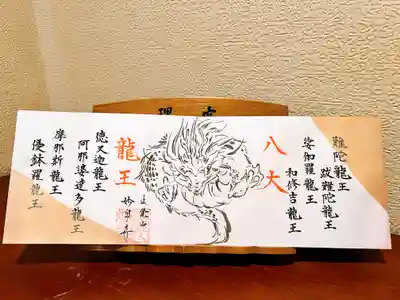 難陀龍王
跋難陀龍王
娑伽羅龍王
和修吉龍王
八大
龍王
徳叉迦龍王
阿那婆達多龍王
摩那斯龍王
優鉢羅龍王